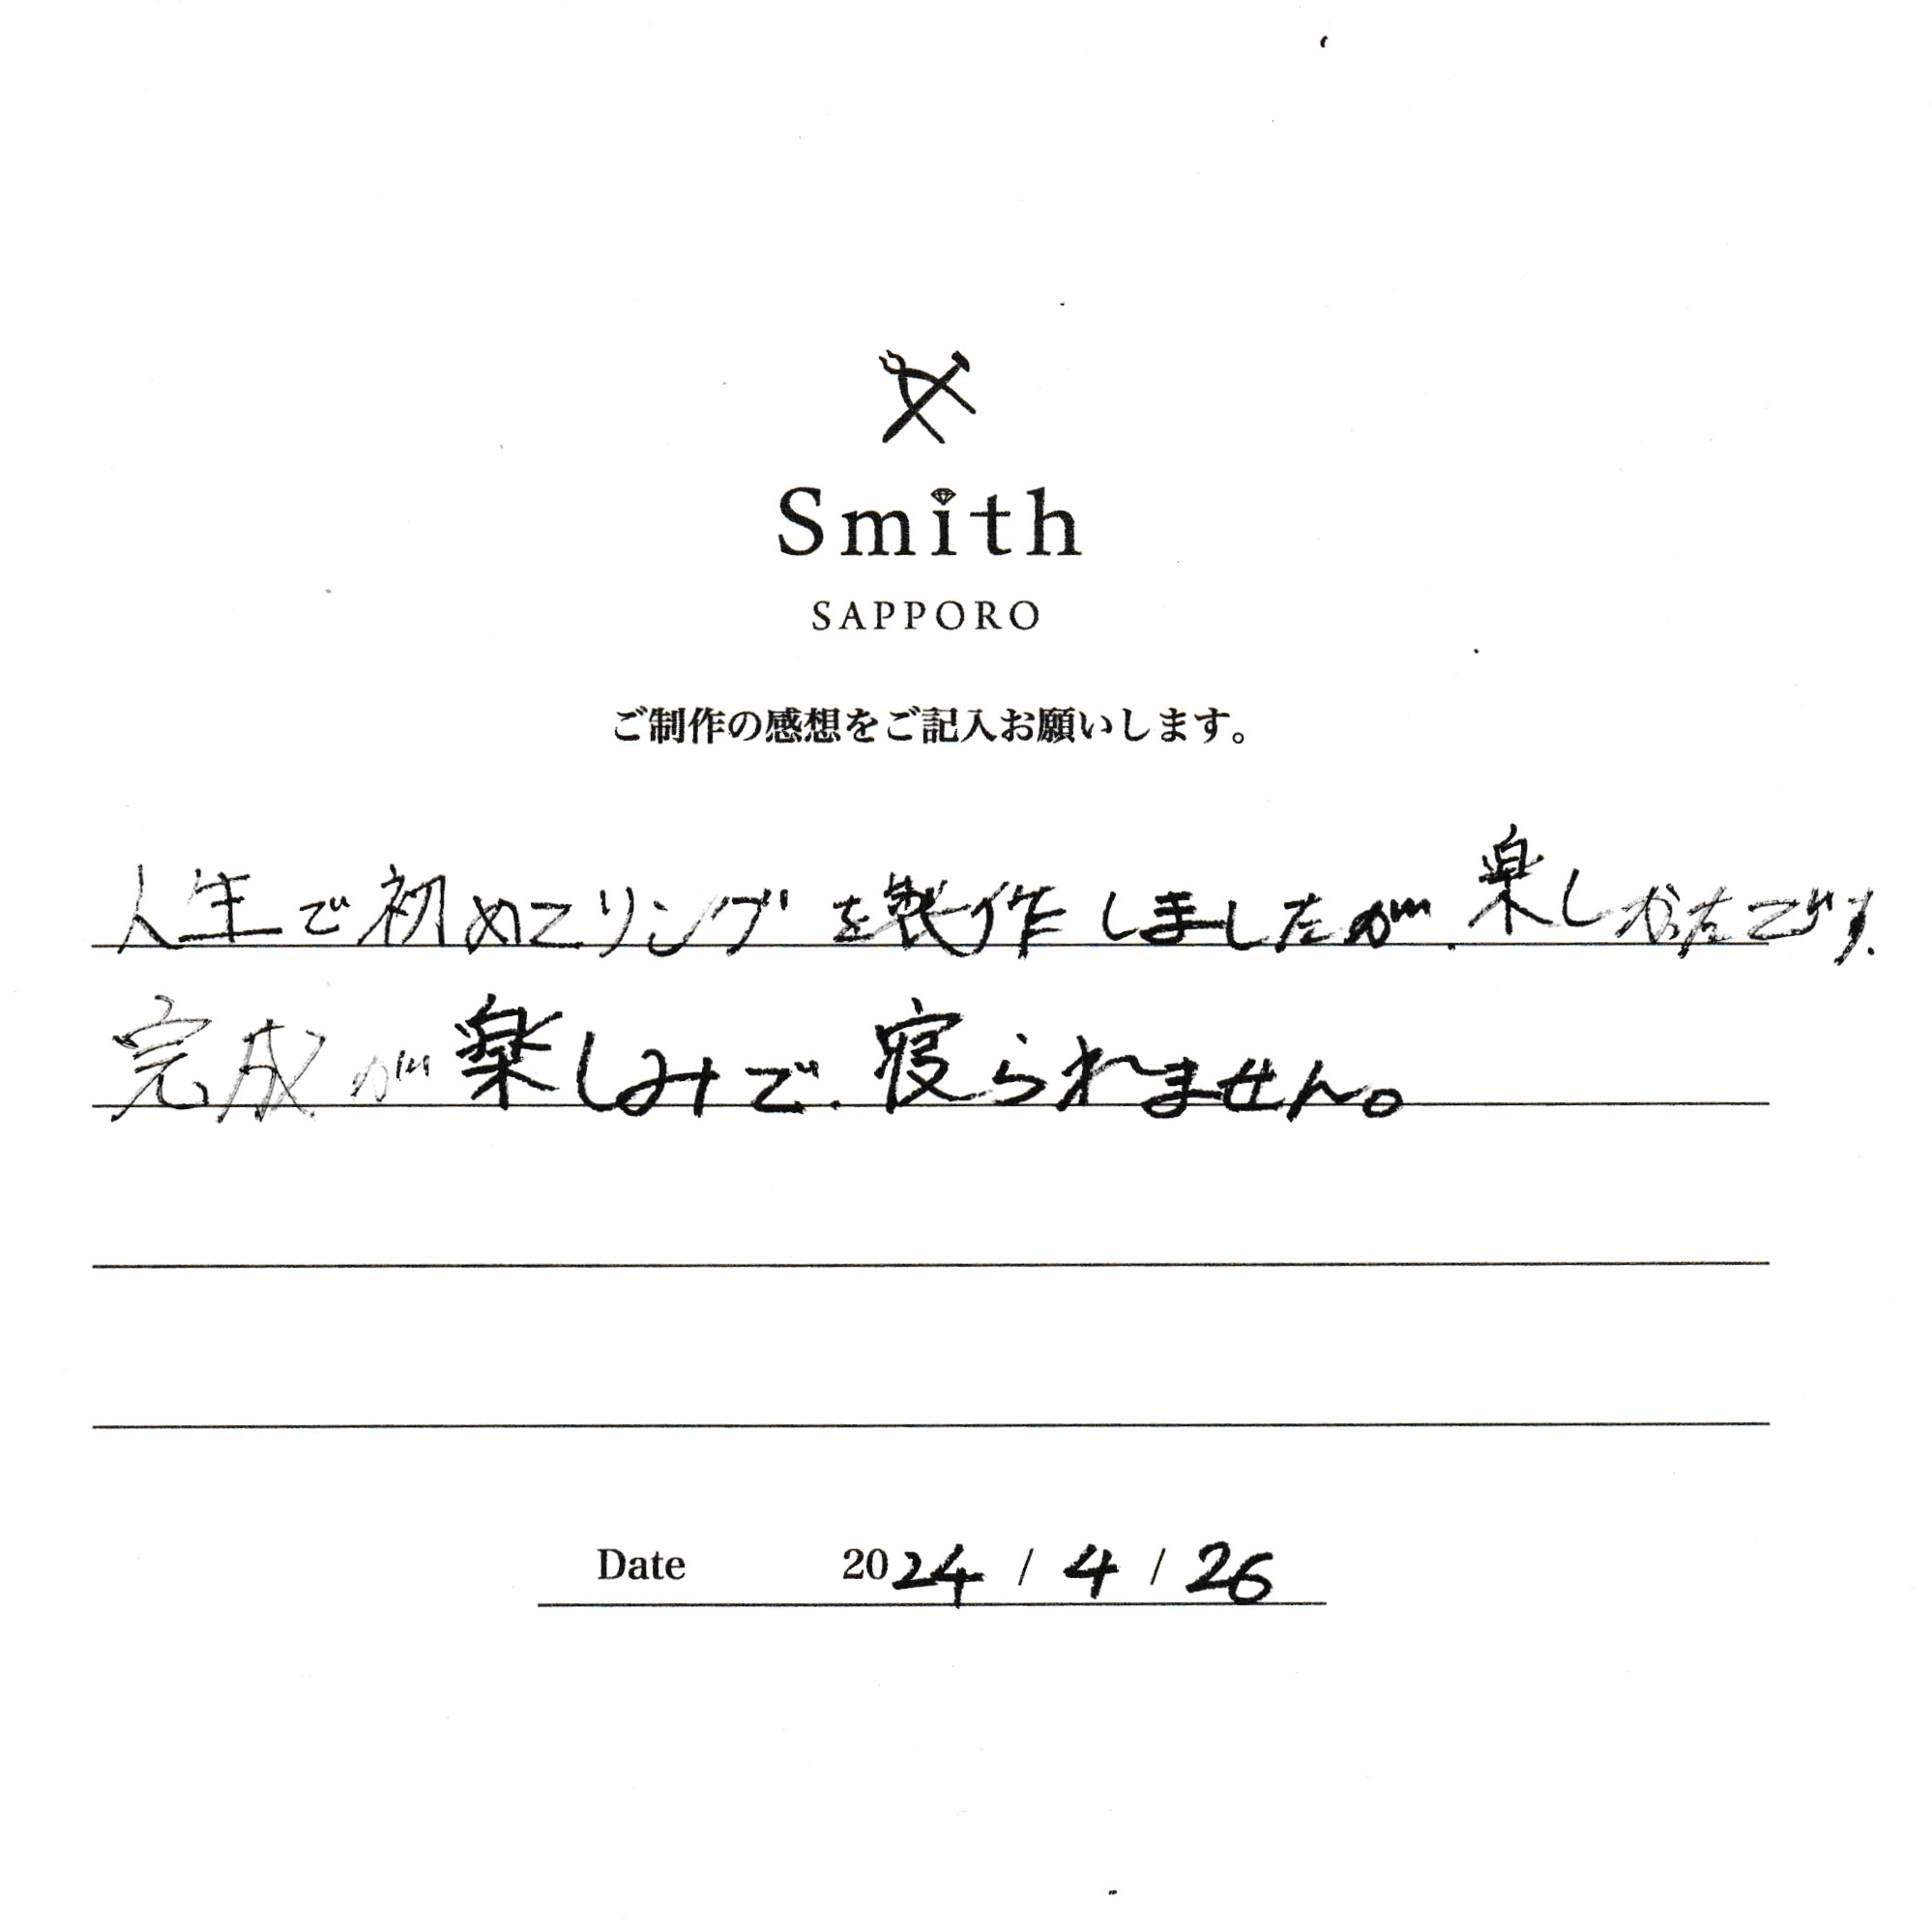 Smith
SAPPORO
ご制作の感想をご記入お願いします。
人生で初めてリングを製作しましたが、楽しかったです。
完成が楽しみで、寝られません。
Date 2024 / 4 / 26